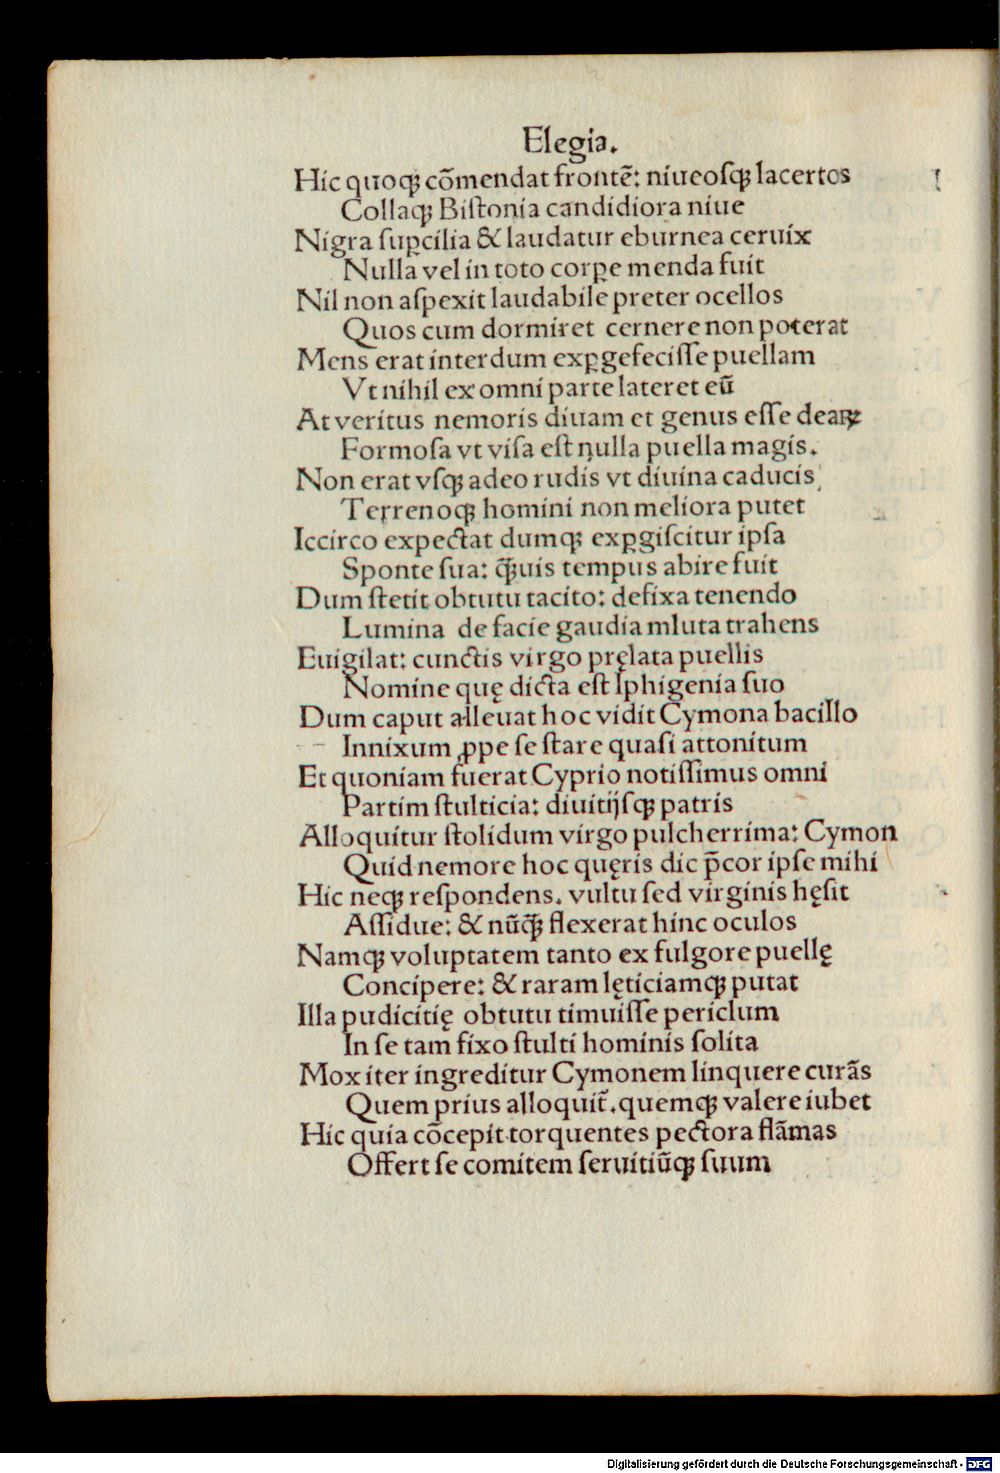 Elegia.
Hic quoqꝫ cōmendat frontē: niueoſqꝫ lacertos
Collaqꝫ Biſtonia candidiora niue
Nigra ſuꝑcilia & laudatur eburnea ceruix
Nulla vel in toto corꝑe menda fuit
Nil non aſpexit laudabile preter ocellos
Quos cum dormiret cernere non poterat
Mens erat interdum exꝑgefeciſſe puellam
Vt nihil ex omni parte lateret eū
At veritus nemoris diuam et genus eſſe deaꝝ
Formoſa vt viſa eſt nulla puella magis.
Non erat vſqꝫ adeo rudis vt diuina caducis
Terrenoqꝫ homini non meliora putet
Iccirco expectat dumqꝫ exꝑgiſcitur ipſa
Sponte ſua: q̄ꝫuis tempus abire fuit
Dum ſtetit obtutu tacito: defixa tenendo
Lumina de facie gaudia mluta trahens
Euigilat: cunctis virgo pręlata puellis
Nomine quę dicta eſt Iphigenia ſuo
Dum caput alleuat hoc vidit Cymona bacillo
Innixum ꝓpe ſe ſtare quaſi attonitum
Et quoniam fuerat Cyprio notiſſimus omni
Partim ſtulticia: diuitijſqꝫ patris
Alloquitur ſtolidum virgo pulcherrima: Cymon
Quid nemore hoc quęris dic p̄cor ipſe mihi
Hic neqꝫ reſpondens. vultu ſed virginis hęſit
Aſſidue: & nūq̄ꝫ flexerat hinc oculos
Namqꝫ voluptatem tanto ex fulgore puellę
Concipere: & raram lęticiamqꝫ putat
Illa pudicitię obtutu timuiſſe periclum
In ſe tam fixo ſtulti hominis ſolita
Mox iter ingreditur Cymonem linquere curās
Quem prius alloquit̃. quemqꝫ valere iubet
Hic quia cōcepit torquentes pectora flāmas
Offert ſe comitem ſeruitiūqꝫ ſuum
Digitalisierung gefördert durch die Deutsche Forschungsgemeinschaft - DFG